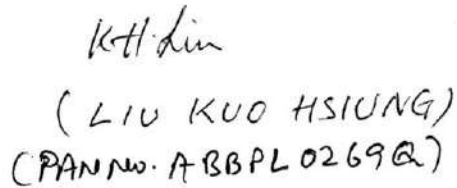 K.H. Liu
(LIU KUO HSIUNG)
(PAN NO. ABBPL0269Q)